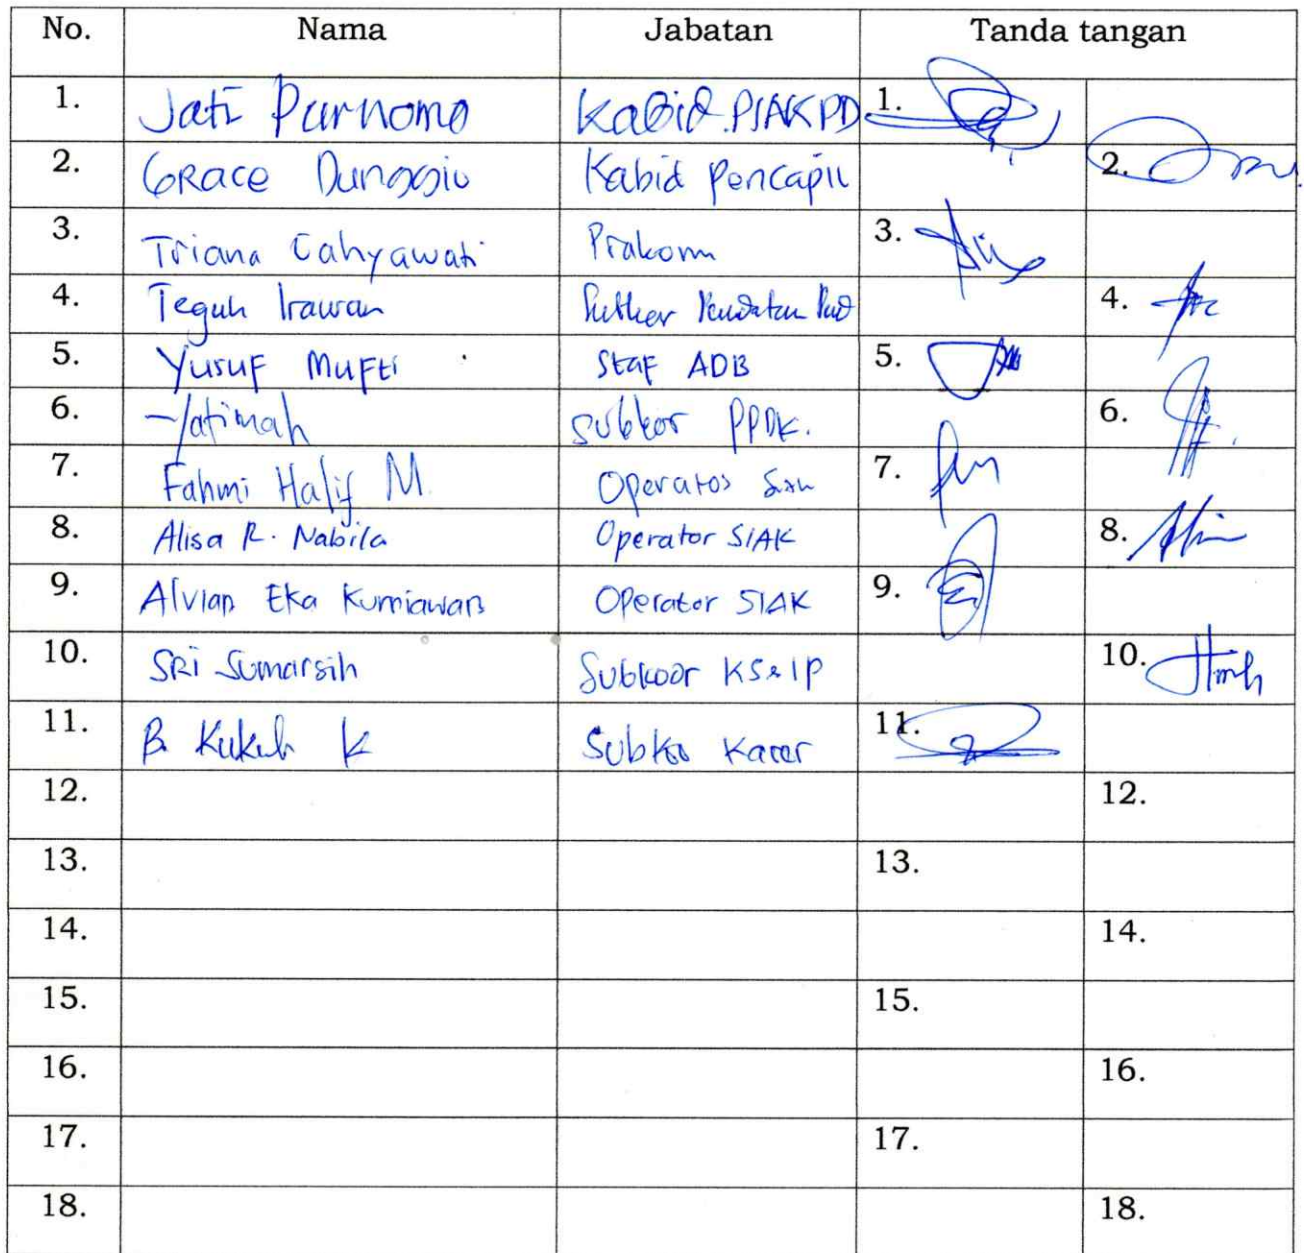 No. Nama Jabatan Tanda tangan
1. Jati Purnomo Kabid PIAKPD 1.
2. GRace Dunggio Kabid Pencapil 2.
3. Triana Cahyawati Prakom 3.
4. Teguh Irawan 4.
5. Yusuf Mufti Staf ADB 5.
6. Fatimah subkor PPDK. 6.
7. Fahmi Halif M. Operator 7.
8. Alisa R. Nabila Operator SIAK 8.
9. Alvian Eka Kurniawan Operator SIAK 9.
10. SRi Sumarsih Subkoor KS&IP 10.
11. B. Kukuh K 11.
12. 12.
13. 13.
14. 14.
15. 15.
16. 16.
17. 17.
18. 18.